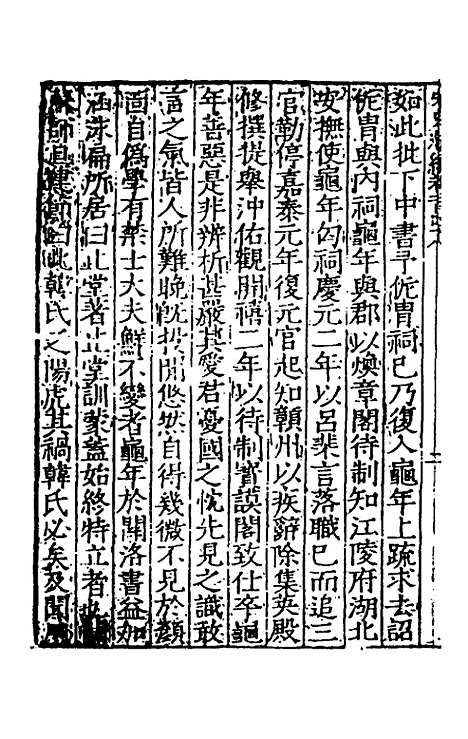 如此批下中書予侂冑祠已乃復入龜年上疏求去詔
侂冑與內祠龜年與郡以煥章閣待制知江陵府湖北
安撫使龜年匄祠慶元二年以呂棐言落職已而追三
官勒停嘉泰元年復元官起知贛州以疾辭除集英殿
修撰提舉沖佑觀開禧二年以待制寶謨閣致仕卒龜
年善惡是非辨析甚嚴其愛君憂國之忱先見之識敢
言之氣皆人所難晚既投閒悠然自得幾微不見於顏
面自偽學有禁士大夫鮮不變者龜年於關洛書益加
涵泳扁所居曰止堂著止堂訓蒙蓋始終特立者也聞
蘇師旦建節曰此韓氏之陽虎其禍韓氏必矣及聞